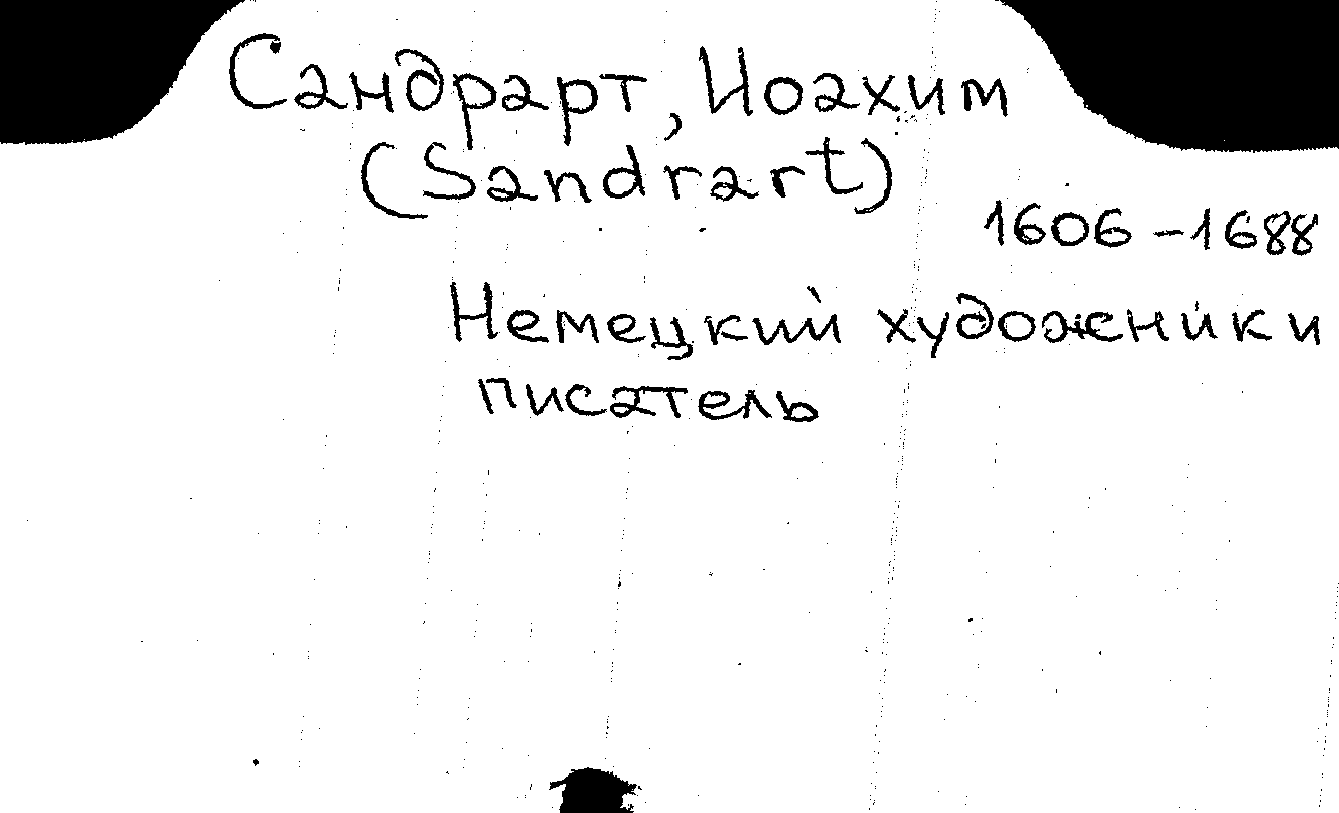 Сандрарт, Иоахим
(Sandrart)
1606 - 1688
Немецкий художник и
писатель